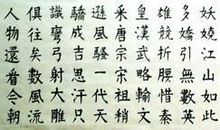 妖嬈江山如此
多嬌引無數英
雄競折腰惜秦
皇漢武略輸文
采唐宗宋祖稍
遜風騷一代天
驕成吉思汗只
識彎弓射大雕
俱往矣數風流
人物還看今朝